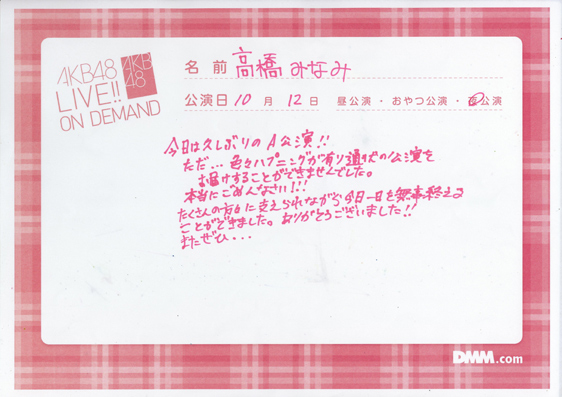 AKB48
LIVE!!
ON DEMAND
AKB
48
名前 高橋みなみ
公演日 10月 12日 昼公演・おやつ公演・夜公演
今日は久しぶりのA公演!!
ただ...色々ハプニングが有り通常の公演を
お届けすることができませんでした。
本当にごめんなさい!!!
たくさんの方々に支えられながら今日一日を無事終える
ことができました。ありがとうございました!!
またぜひ...
DMM.com